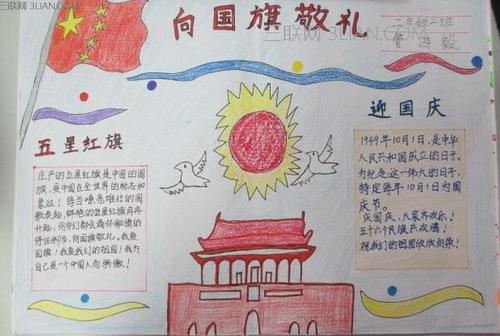 三联网 3LIAN.COM
向国旗敬礼
三联网 3LIAN.COM
二年级二班
五星红旗
庄严的五星红旗是中国的国
旗,是中国在全世界的标志和
象征!每当嘹亮雄壮的国
歌奏起,鲜艳的五星红旗冉冉
升起,同学们都会满怀激情的
停住脚步,向国旗敬礼。我爱
国旗!我爱我们的祖国!我为
自己是一个中国人而骄傲!
迎国庆
1949年10月1日,是中华
人民共和国成立的日子。
为纪念这一伟大的日子,
特定每年10月1日为国
庆节。
庆国庆,大家齐欢乐!
五十六个民族共欢腾!
祝我们的祖国欣欣向荣!